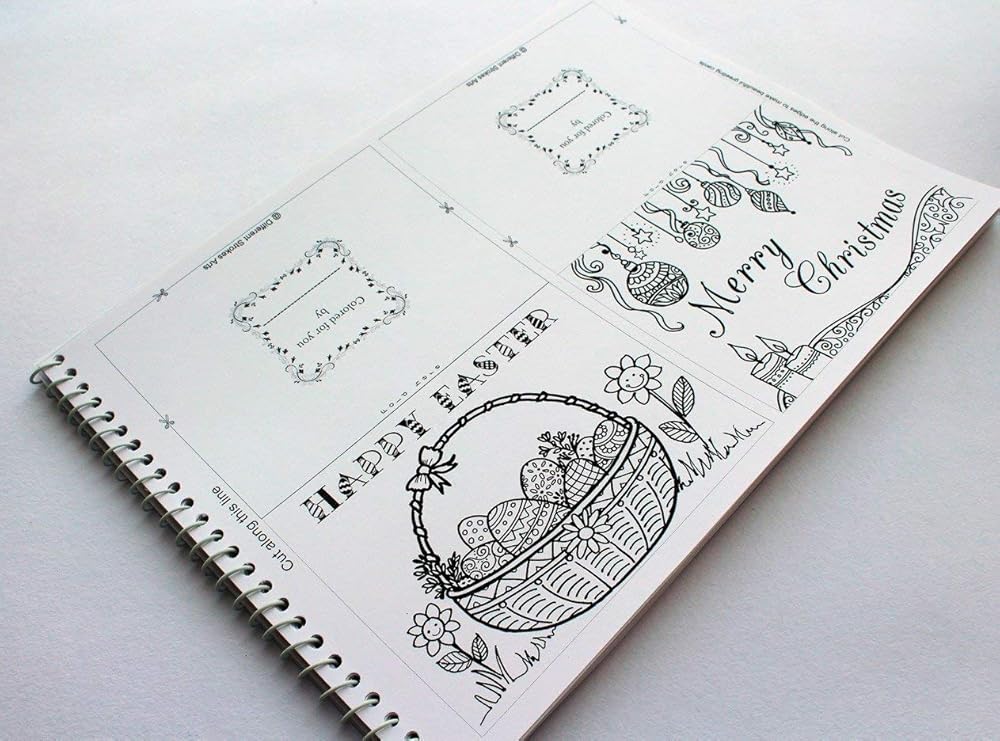 Cut along the edges to make beautiful greeting cards
@ Different Strokes Arts
Colored for you
by
Merry
Christmas
@ Different Strokes Arts
Colored for you
by
HAPPY EASTER
Cut along this line